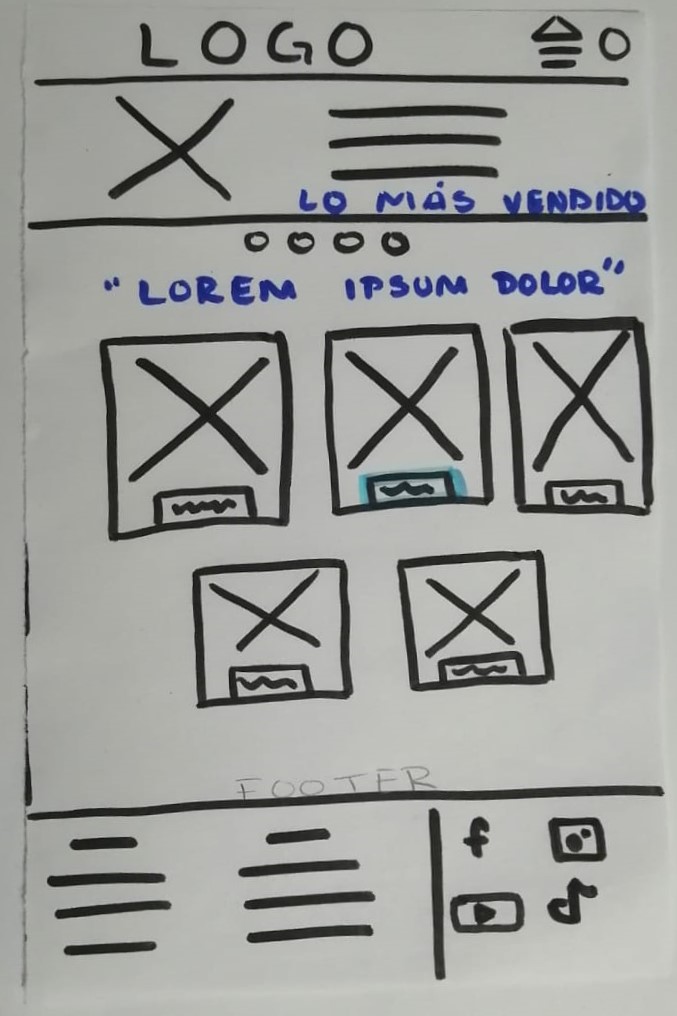 LOGO
LO MÁS VENDIDO
"LOREM IPSUM DOLOR"
FOOTER